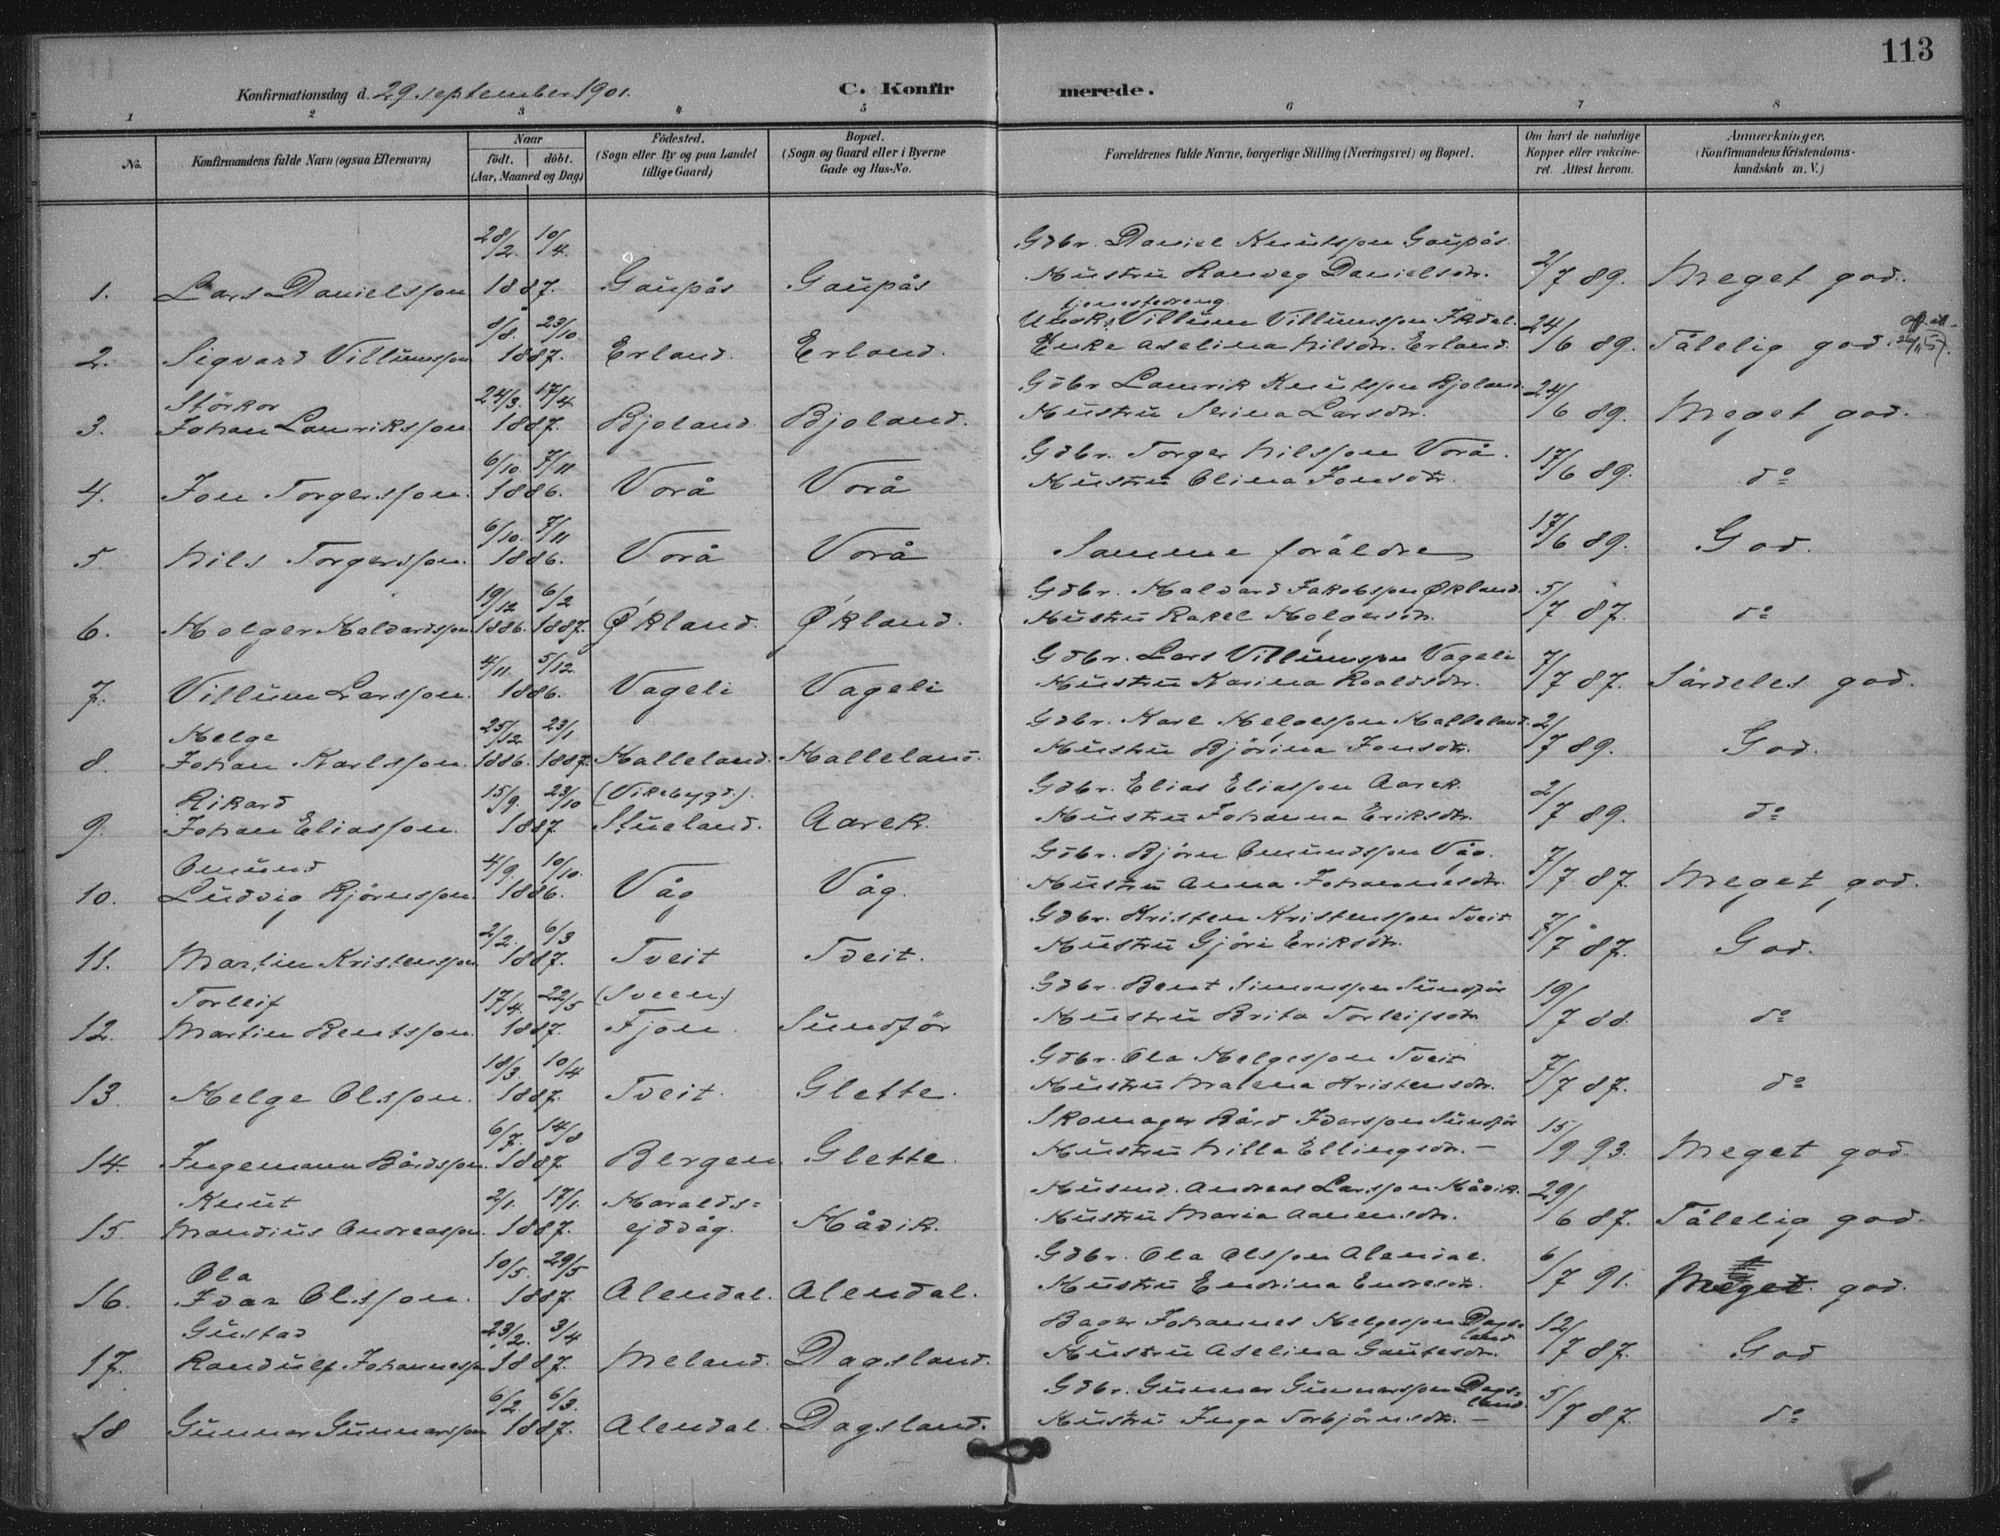 113
Konfirmationsdag d. 29. september 1901.
C. Konfirmerede.
1 2 3 4 5 6 7 8
No.
Konfirmandens fulde Navn (ogsaa Efternavn)
Naar
födt. döbt.
(Aar, Maaned og Dag)
Födested.
(Sogn eller By og paa Landet
tillige Gaard)
Bopæl.
(Sogn og Gaard eller i Byerne
Gade og Hus-No.
Forældrenes fulde Navne, borgerlige Stilling (Næringsvei) og Bopæl.
Om havt de naturlige
Kopper eller vakcine-
ret. Attest herom.
Anmærkninger.
(Konfirmandens Kristendoms-
kundskab m. V.)
28/2. 10/4. Gdbr. Daniel Knutsson Gaupås
1. Lars Danielsson 1887. Gaupås Gaupås Hustru Ranveg Danielsdtr. 2/7 89. Meget god.
tjenestedreng
8/8. 23/10. Villum Villumsson
2. Sigvard Villumsson 1887. Erland. Erland. Enke Aselina Nilsdtr. Erland. 24/6 89. Tålelig god.
Störkor 24/3. 17/4 Gdbr Lamrik Knutsson Bjoland.
3. Johan Lamriksson 1887. Bjoland. Bjoland. Hustru Serina Larsdtr. 24/6 89. Meget god.
6/10. 7/11 Gdbr. Torger Nilsson Vorå.
4. Jon Torgersson. 1886. Vorå Vorå Hustru Olina Jonsdtr. 17/6 89. do
6/10. 7/11
5. Nils Torgersson. 1886. Vorå Vorå Samme foräldre 17/6 89. God.
19/12 6/2 Gdbr. Halvard Jakobsson Økland.
6. Holger Halvardsson 1886. 1887. Økland. Økland. Hustru Rakel Holgersdtr. 5/7 87. do
4/11. 5/12. Gdbr. Lars Villumsson Vageli
7. Villum Larsson. 1886. Vageli Vageli Hustru Karina Roaldsdtr. 7/7 87. Särdeles god.
Helge 25/12 23/1 Gdbr. Karl Helgesson Halleland.
8. Johan Karlsson. 1886. 1887. Halleland. Halleland. Hustru Bjórina Jonsdtr. 2/7 89. God.
Rikard 15/9. 23/10 (Vikebygd). Gdbr. Elias Eliasson Aarek.
9. Johan Eliasson. 1887. Stueland. Aarek. Hustru Johanna Eriksdtr. 2/7 89. do
Omund 4/9. 10/10. Gdbr. Bjórn Omundsson Våg.
10. Ludvig Bjórnsson 1886. Våg Våg. Hustru Anna Johannesdtr. 7/7 87. Meget god.
2/2. 6/3 Gdbr. Kristen Kristensson Tveit
11. Martin Kristensson 1887. Tveit Tveit. Hustru Gjóri Eriksdtr. 7/7 87. God.
Torleif 17/4. 22/5 (Sveen) Gdbr. Bent Simonsson Sundfør
12. Martin Bentsson. 1887. Fjon. Sundför Hustru Brita Torleifsdtr. 19/7 88. do
18/3. 10/4 Gdbr. Ola Helgesson Tveit
13. Helge Olsson. 1887. Tveit. Glette. Hustru Malena Kristensdtr. 7/7 87. do
6/7. 14/8 Skomager Bård Ivarsson Sundför
14. Ingemann Bårdsson. 1887 Bergen Glette. Hustru Milla Ellingsdtr. — 15/9 93. Meget god.
Knut 2/1. 17/1. Haralds- Husmd. Andreas Larsson Håvik.
15. Mandius Andreasson 1887. ejdvåg. Håvik. Hustru Maria Aanensdtr. 29/6 87. Tålelig god.
Ola 10/5. 29/5 Gdbr. Ola Olsson Alendal.
16. Ivar Olsson. 1887. Alendal. Alendal. Hustru Endrina Endresdtr. 6/7 91. Meget god.
Gustav 23/2. 3/4 Bager Johannes Helgesson Dagsland
17. Randulf Johannesson 1887. Meland. Dagsland. Hustru Aselina Gautesdtr. 12/7 87. God
6/2. 6/3. Gdbr. Gunnar Gunnarsson Dagsland.
18 Gunnar Gunnarsson 1887. Alendal. Dagsland. Hustru Inga Torbjórnsdtr. — 5/7 87. do